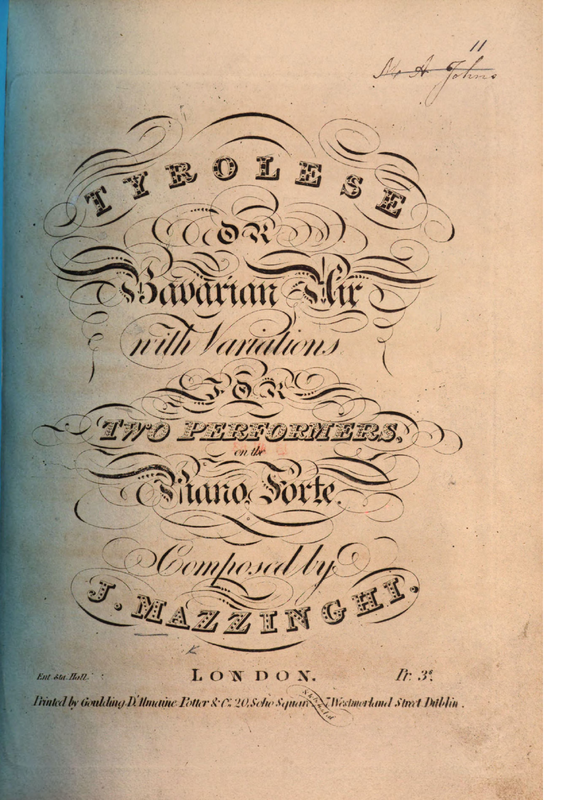 11
M. A. Johns
TYROLESE
OR
Bavarian Air
with Variations
FOR
TWO PERFORMERS,
on the
Piano Forte.
Composed by
J. MAZZINGHI.
LONDON.
Ent. Sta. Hall.
Pr. 3s.
Printed by Goulding D'Almaine Potter & Co. 20, Soho Square 7 Westmorland Street Dublin.